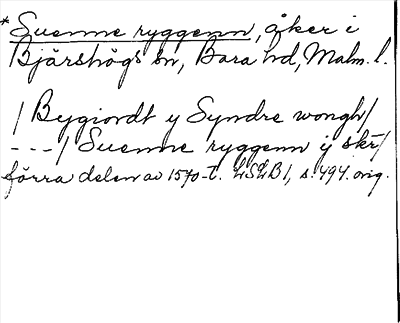 *Suenne ryggenn, åker i
Bjärshögs sn, Bara hd, Malm. l.
/ Bygiordt y Syndre wongh/
---/ Suenne ryggenn ÿ skr/
förra delen av 1570-t. LSLB1, s. 494. orig.